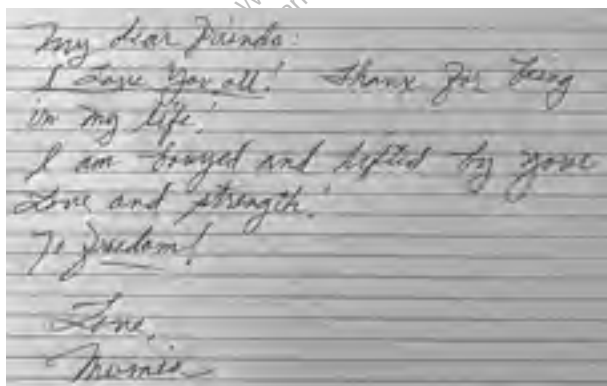 My dear Friends:
I Love You all! Thanx for being
in my life!
I am bouyed and lifted by your
Love and strength!
To freedom!
Love,
Mumia